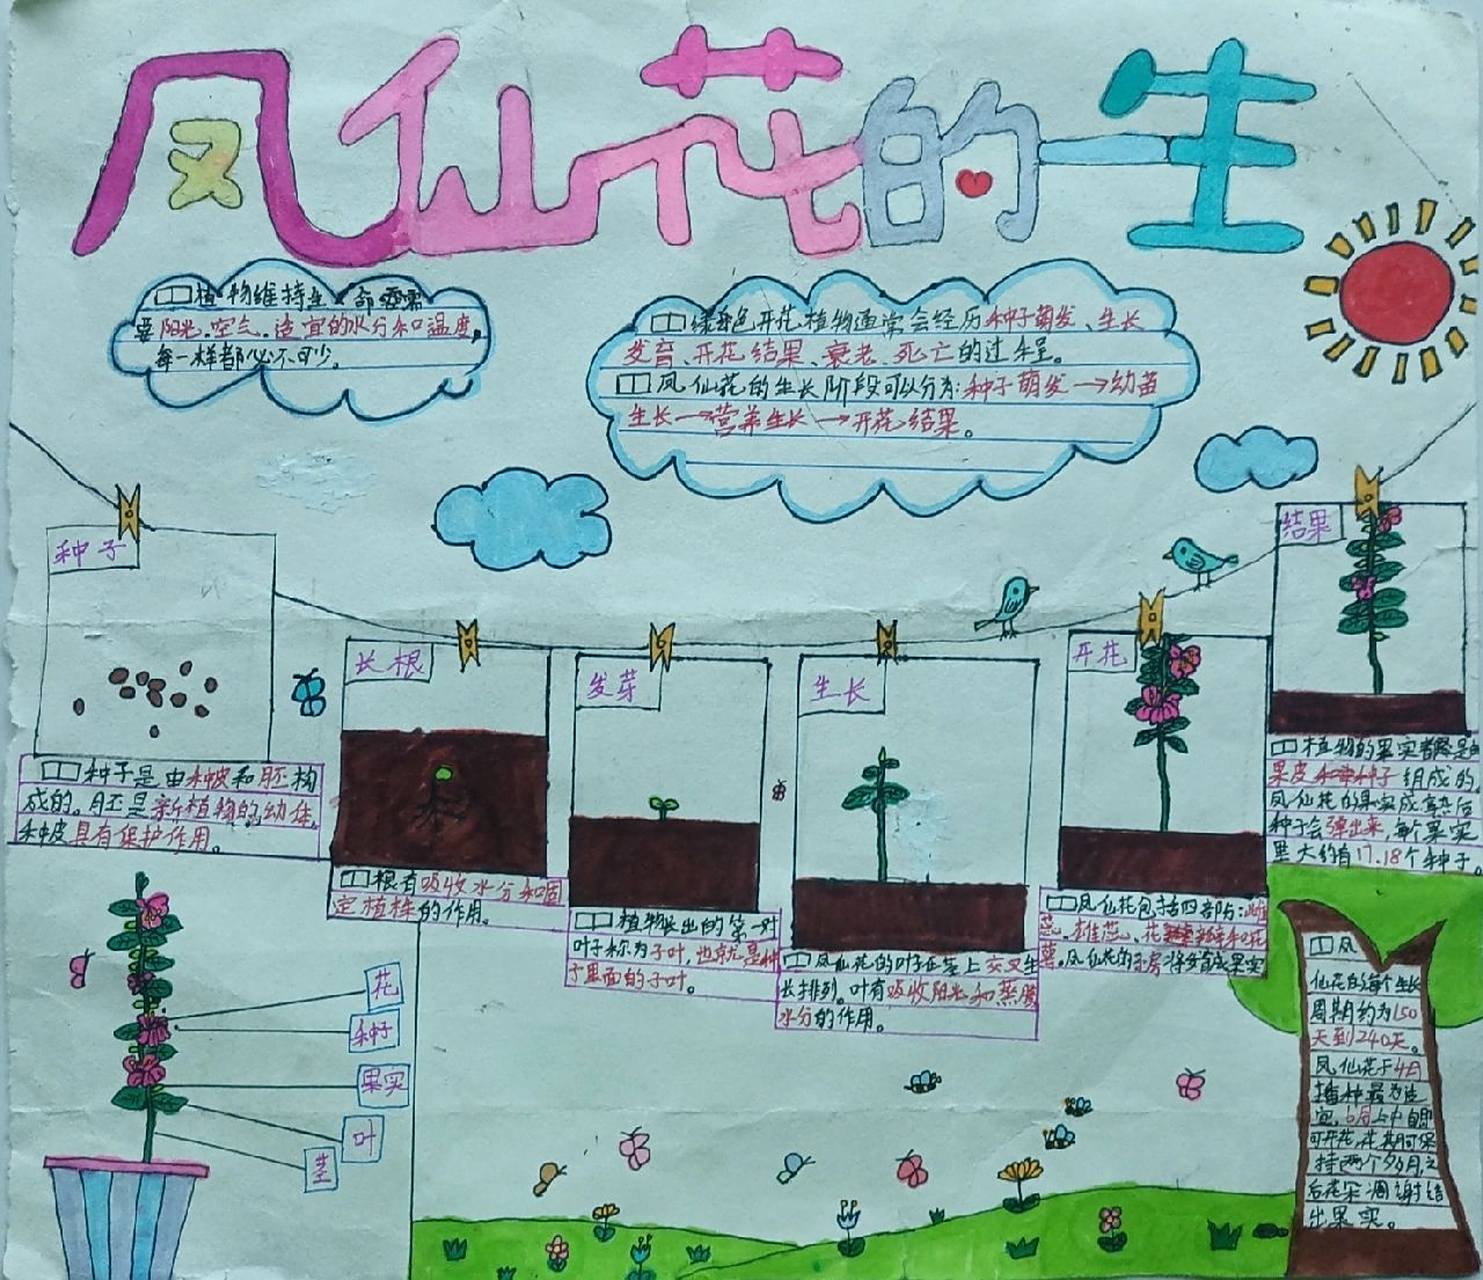 凤仙花的一生
植物维持生命需
要阳光、空气、适宜的水分和温度,
每一样都必不可少。
绿色开花植物通常会经历种子萌发、生长
发育、开花结果、衰老、死亡的过程。
凤仙花的生长阶段可以分为:种子萌发→幼苗
生长→营养生长→开花结果。
种子
种子是由种皮和胚构
成的。胚是新植物的幼体,
种皮具有保护作用。
长根
根有吸收水分和固
定植株的作用。
发芽
植物长出的第一对
叶子称为子叶,也就是种
子里面的子叶。
生长
凤仙花的叶子在茎上交叉生
长排列。叶有吸收阳光和蒸腾
水分的作用。
开花
凤仙花包括四部分:雌
蕊、雄蕊、花瓣和花
萼。凤仙花的子房将发育成果实
结果
植物的果实都是由
果皮和种子组成的
凤仙花的果实成熟后
种子会弹出来,每个果实
里大约有17.18个种子。
花
种子
果实
叶
茎
凤
仙花的每个生长
周期约为150
天到240天。
凤仙花于4月
播种最为适
宜,6月上中旬即
可开花,花期可保
持两个多月,之
后花朵凋谢结
出果实。